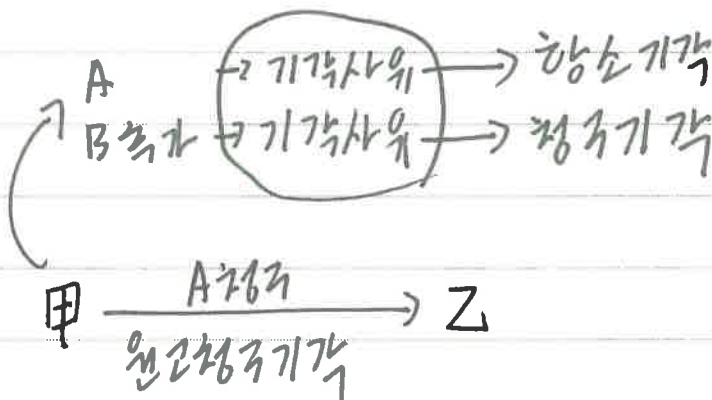 A → 기각사유 → 항소기각
B추가 → 기각사유 → 청구기각
甲 A청구 → 乙
원고청구기각